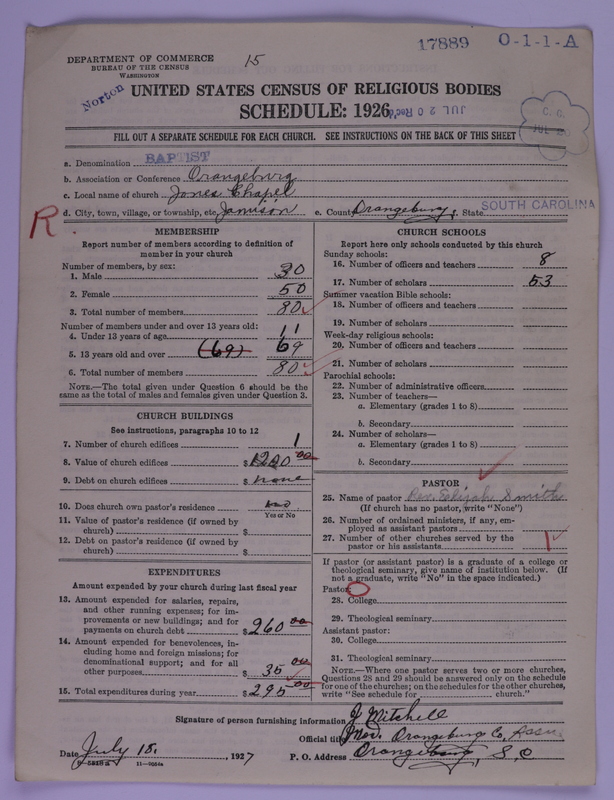 17889 O-1-1-A
15
DEPARTMENT OF COMMERCE
BUREAU OF THE CENSUS
WASHINGTON
Norton
UNITED STATES CENSUS OF RELIGIOUS BODIES
SCHEDULE: 1926
JUL 20 Rec'd
C. C.
JUL
FILL OUT A SEPARATE SCHEDULE FOR EACH CHURCH. SEE INSTRUCTIONS ON THE BACK OF THIS SHEET
a. Denomination BAPTIST
b. Association or Conference Orangeburg
c. Local name of church Jones Chapel
d. City, town, village, or township, etc. Jamison e. County Orangeburg f. State SOUTH CAROLINA
R.
MEMBERSHIP
Report number of members according to definition of
member in your church
Number of members, by sex:
1. Male 30
2. Female 50
3. Total number of members 80
Number of members under and over 13 years old:
4. Under 13 years of age 11
5. 13 years old and over (69) 69
6. Total number of members 80
NOTE.—The total given under Question 6 should be the
same as the total of males and females given under Question 3.
CHURCH BUILDINGS
See instructions, paragraphs 10 to 12
7. Number of church edifices 1
8. Value of church edifices $1200 00
9. Debt on church edifices $ none
10. Does church own pastor's residence no
Yes or No
11. Value of pastor's residence (if owned by
church) $
12. Debt on pastor's residence (if owned by
church) $
EXPENDITURES
Amount expended by your church during last fiscal year
13. Amount expended for salaries, repairs,
and other running expenses; for im-
provements or new buildings; and for
payments on church debt $260 00
14. Amount expended for benevolences, in-
cluding home and foreign missions; for
denominational support; and for all
other purposes $35 00
15. Total expenditures during year $295 00
CHURCH SCHOOLS
Report here only schools conducted by this church
Sunday schools:
16. Number of officers and teachers 8
17. Number of scholars 53
Summer vacation Bible schools:
18. Number of officers and teachers
19. Number of scholars
Week-day religious schools:
20. Number of officers and teachers
21. Number of scholars
Parochial schools:
22. Number of administrative officers
23. Number of teachers—
a. Elementary (grades 1 to 8)
b. Secondary
24. Number of scholars—
a. Elementary (grades 1 to 8)
b. Secondary
PASTOR
25. Name of pastor Rev. Elijah Smith
(If church has no pastor, write "None")
26. Number of ordained ministers, if any, em-
ployed as assistant pastors
27. Number of other churches served by the
pastor or his assistants 1
If pastor (or assistant pastor) is a graduate of a college or
theological seminary, give name of institution below. (If
not a graduate, write "No" in the space indicated.)
Pastor:
28. College
29. Theological seminary
Assistant pastor:
30. College
31. Theological seminary
NOTE.—Where one pastor serves two or more churches,
Questions 28 and 29 should be answered only on the schedule
for one of the churches; on the schedules for the other churches,
write "See schedule for church."
Signature of person furnishing information J Mitchell
Official title Mod. Orangeburg Co, Assn
Date July 18, 1927 P. O. Address Orangeburg, S, C
11—9664a